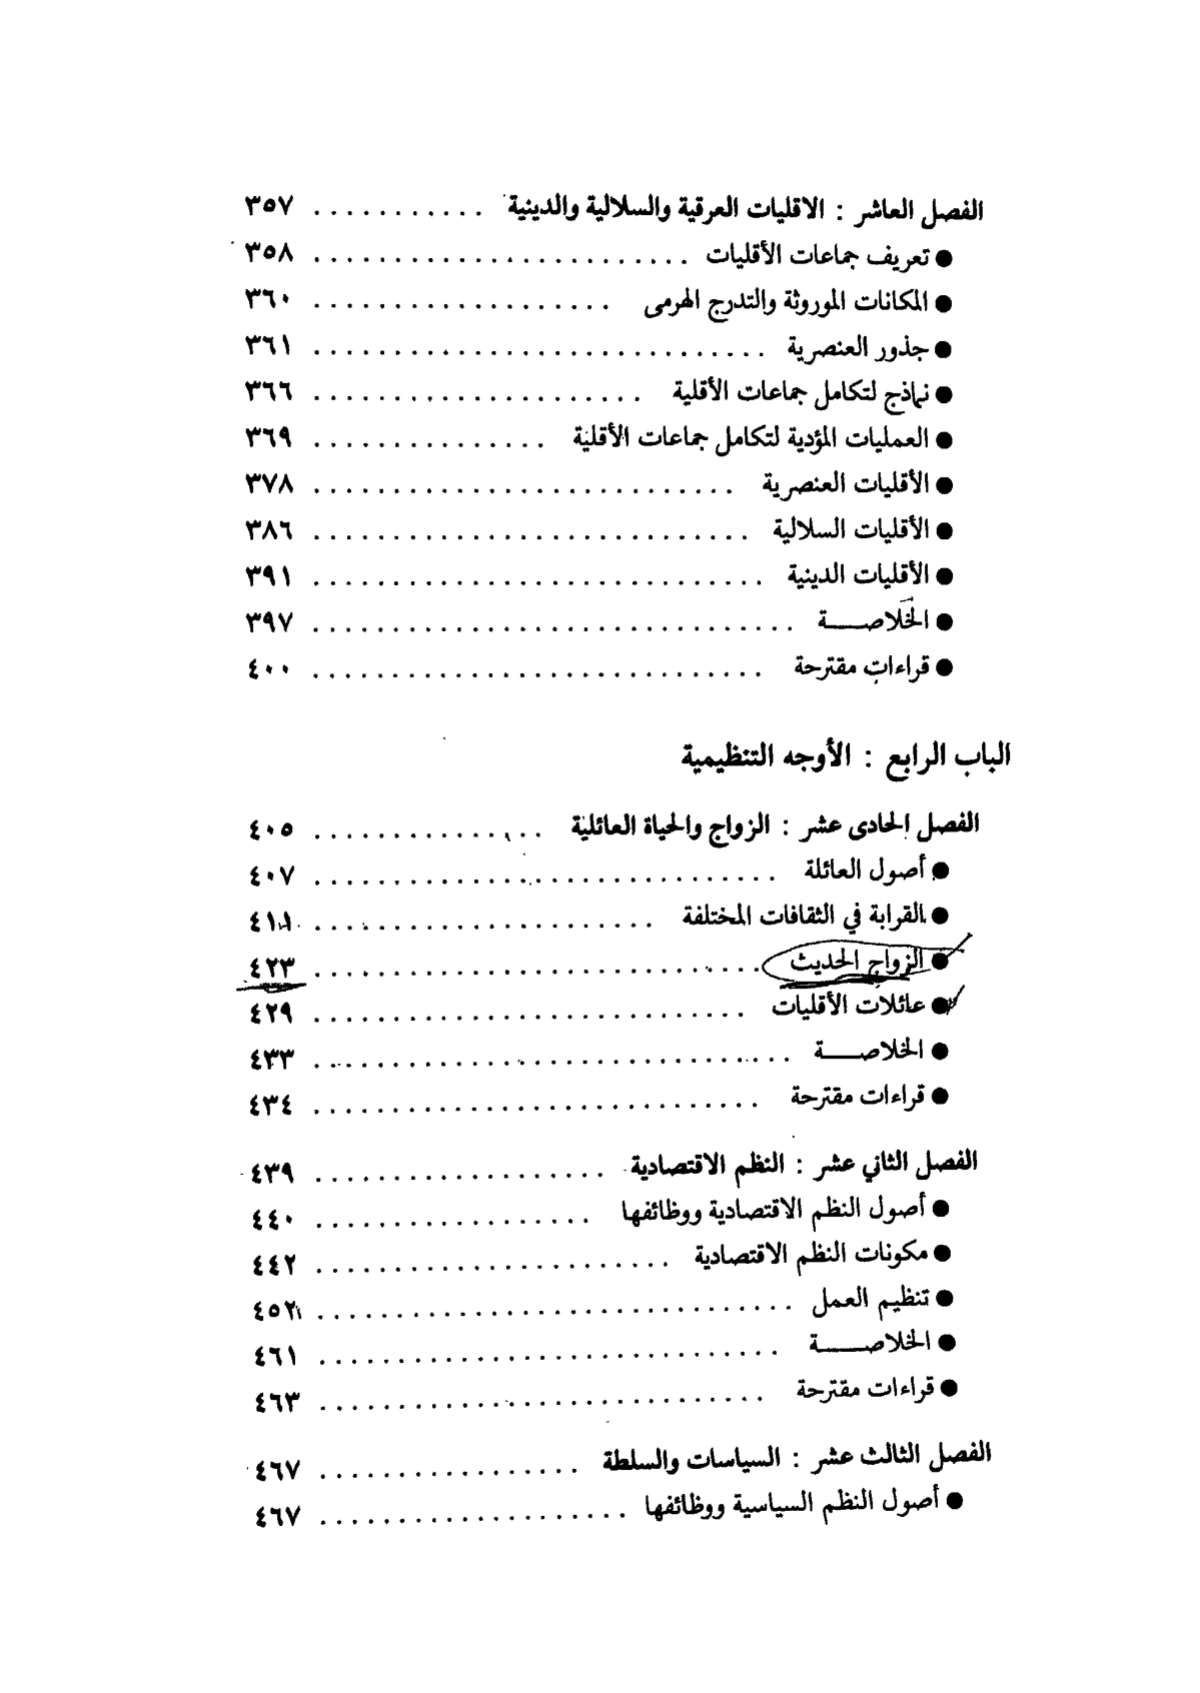 الفصل العاشر : الاقليات العرقية والسلالية والدينية . . . . . . . . . . . ٣٥٧
● تعريف جماعات الأقليات . . . . . . . . . . . . . . . . . . . . . . . . ٣٥٨
● المكانات الموروثة والتدرج الهرمى . . . . . . . . . . . . . . . . . . . ٣٦٠
● جذور العنصرية . . . . . . . . . . . . . . . . . . . . . . . . . . . . . ٣٦١
● نماذج لتكامل جماعات الأقلية . . . . . . . . . . . . . . . . . . . . . ٣٦٦
● العمليات المؤدية لتكامل جماعات الأقلية . . . . . . . . . . . . . . . ٣٦٩
● الأقليات العنصرية . . . . . . . . . . . . . . . . . . . . . . . . . . . ٣٧٨
● الأقليات السلالية . . . . . . . . . . . . . . . . . . . . . . . . . . . . ٣٨٦
● الأقليات الدينية . . . . . . . . . . . . . . . . . . . . . . . . . . . . . ٣٩١
● الخلاصـــة . . . . . . . . . . . . . . . . . . . . . . . . . . . . . . . ٣٩٧
● قراءات مقترحة . . . . . . . . . . . . . . . . . . . . . . . . . . . . . ٤٠٠
الباب الرابع : الأوجه التنظيمية
الفصل الحادى عشر : الزواج والحياة العائلية . . . . . . . . . . . . . . . ٤٠٥
● أصول العائلة . . . . . . . . . . . . . . . . . . . . . . . . . . . . . . ٤٠٧
● القرابة في الثقافات المختلفة . . . . . . . . . . . . . . . . . . . . . . ٤١١
● الزواج الحديث . . . . . . . . . . . . . . . . . . . . . . . . . . . . . ٤٢٣
● عائلات الأقليات . . . . . . . . . . . . . . . . . . . . . . . . . . . . ٤٢٩
● الخلاصـــة . . . . . . . . . . . . . . . . . . . . . . . . . . . . . . . ٤٣٣
● قراءات مقترحة . . . . . . . . . . . . . . . . . . . . . . . . . . . . . ٤٣٤
الفصل الثاني عشر : النظم الاقتصادية . . . . . . . . . . . . . . . . . . . ٤٣٩
● أصول النظم الاقتصادية ووظائفها . . . . . . . . . . . . . . . . . . ٤٤٠
● مكونات النظم الاقتصادية . . . . . . . . . . . . . . . . . . . . . . . ٤٤٢
● تنظيم العمل . . . . . . . . . . . . . . . . . . . . . . . . . . . . . . . ٤٥٢
● الخلاصـــة . . . . . . . . . . . . . . . . . . . . . . . . . . . . . . ٤٦١
● قراءات مقترحة . . . . . . . . . . . . . . . . . . . . . . . . . . . . . ٤٦٣
الفصل الثالث عشر : السياسات والسلطة . . . . . . . . . . . . . . . . . ٤٦٧
● أصول النظم السياسية ووظائفها . . . . . . . . . . . . . . . . . . . . ٤٦٧